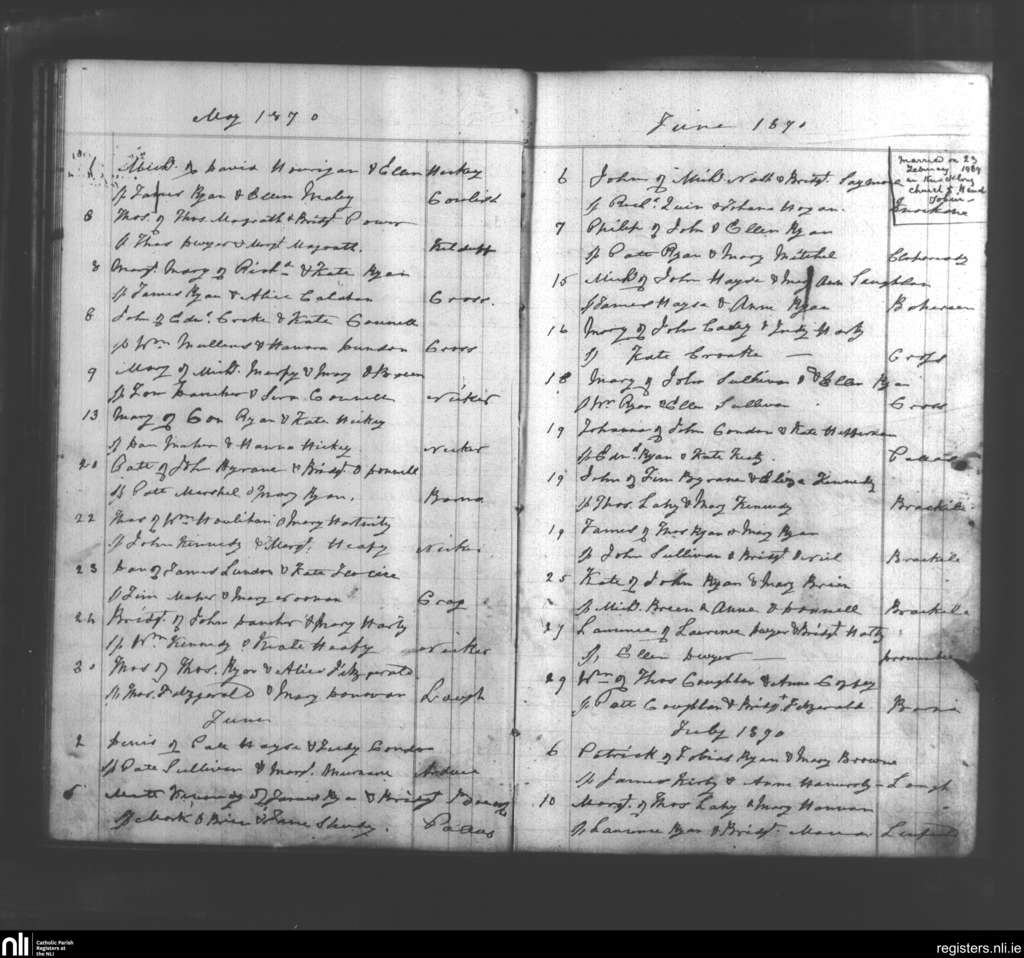 May 1870
1 Mich.l of David Hourigan & Ellen Hickey
Sp James Ryan & Ellen Healy Coolish
8 Thos. of Thos. Magrath & Bridgt Power
Sp Thos Dwyer & Margt Magrath. Kilduff
8 Margt Mary of Richd & Kate Ryan
Sp James Ryan & Alice Calahan Cross.
8 John of Edwd. Cooke & Kate Connell
Sp Wm Mullens & Hanora Dundon Cross
9 Mary of Michl. Murphy & Mary O Breen
Sp & Connell Nicker
13 Mary of Con Ryan & Kate Hickey
Sp Dan Maher & Hanna Hickey Nicker
20 Patt of John & Bridgt O Donnell
Sp Patt Marshel & Mary Ryan. Barna
22 Thos of Wm Houlihan & Mary
Sp John Kennedy & Margt. Heafy Nicker
23 Dan of James Lundon & Kate
Sp Tim Maher & Mary Noonan Cross
24 Bridgt. of John & Mary Harty
Sp Wm Kennedy & Kate Heafy Nicker
30 Thos of Thos. Ryan & Alice Fitzgerald
Sp Thos. Fitzgerald & Mary Donovan Lough
June
2 Denis of Patt Hayse & Judy Condon
Sp Pate Sullivan & Margt. Murnane
5 of James Ryan & Bridgt
Sp Mark O Brien & Jane Sheedy. Pallas
June 1870
Married on 23
February 1909
in Knocklong
church to
6 John of Michl Nolt & Bridgt
Sp Richd. Quin & Johana Hogan.
7 Philip of John & Ellen Ryan
Sp Patt Ryan & Mary Mitchel
15 Michl of John Hayse & Mary Ann Laughlan
Sp James Hayse & Anne Ryan Bohereen
16 Mary of John Cadey & Judy Harty
Sp Kate Croake — Cross
18 Mary of John Sullivan & Ellen Ryan
Sp Wm Ryan & Ellen Sullivan Cross
19 Johanna of John Condon & Kate Heffernan
Sp Edwd. Ryan & Kate Pallas
19 John of Tim Byrane & Eliza Kennedy
Sp Thos. Lahy & Mary Kennedy Brackile
19 James of Thos Ryan & Mary Ryan
Sp John Sullivan & Bridgt Brackile
25 Kate of John Ryan & Mary Brein
Sp Michl. Breen & Anne O Donnell Brackile
27 Laurence of Laurence Dwyer & Bridgt Harty
Sp, Ellen Dwyer —
29 Wm of Thos Coughlan & Anne
Sp Patt Coughlan & Bridgt Fitzgerald Barna
July 1870
6 Patrick of Tobias Ryan & Mary Browne
Sp James Kirby & Anne Lough
10 Margt. of Thos Lahy & Mary Hannan
Sp Laurence Ryan & Bridgt.
nli Catholic Parish
Registers at
the NLI
registers.nli.ie